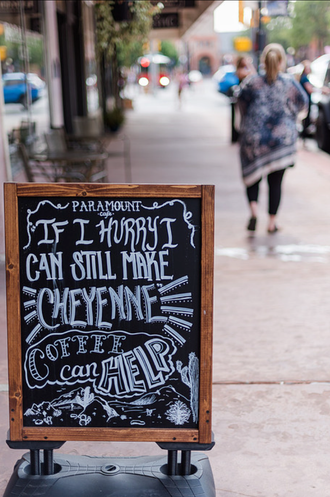 PARAMOUNT
cafe
IF I HURRY I
CAN STILL MAKE
CHEYENNE
COFFEE
can HELP